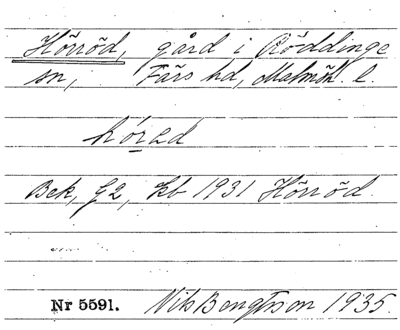 Hörröd, gård i Röddinge
sn, Färs hd, Malmöh. l.
hö̀rəd
Bek, G2, kb 1931 Hörröd.
Nr 5591. Nils Bengtsson 1935.